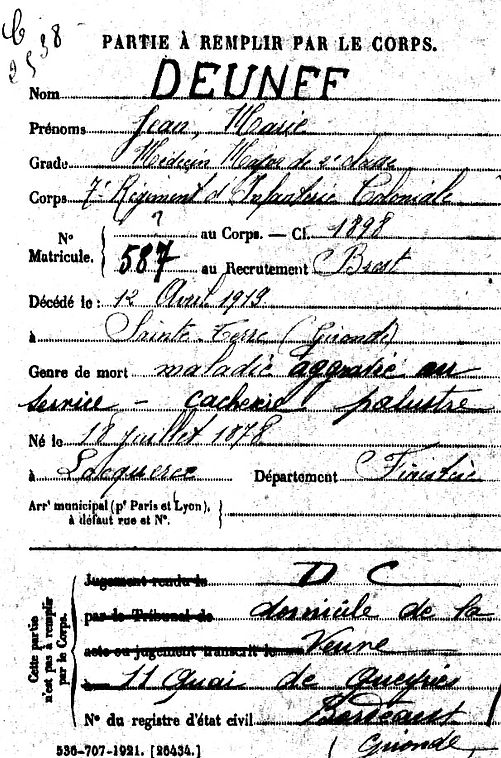 PARTIE À REMPLIR PAR LE CORPS.
Nom DEUNFF
Prénoms Jean, Marie
Grade Médecin Major de 2e classe
Corps 7e Régiment d'Infanterie Coloniale
N° Matricule. { ? au Corps. — Cl. 1898
587 au Recrutement Brest
Décédé le : 12 Avril 1919
à Sainte-Terre (Gironde)
Genre de mort maladie aggravée au
service - cachexie palustre
Né le 18 juillet 1878
à Département Finistère
Arrt municipal (pr Paris et Lyon),
à défaut rue et N°.
Cette partie n'est pas à remplir par le Corps.
Jugement rendu le D C
par le Tribunal de domicile de la
acte ou jugement transcrit le Veuve
à 11 Quai de Queyries
N° du registre d'état civil Bordeaux
536-707-1921. [26434.] (Gironde)